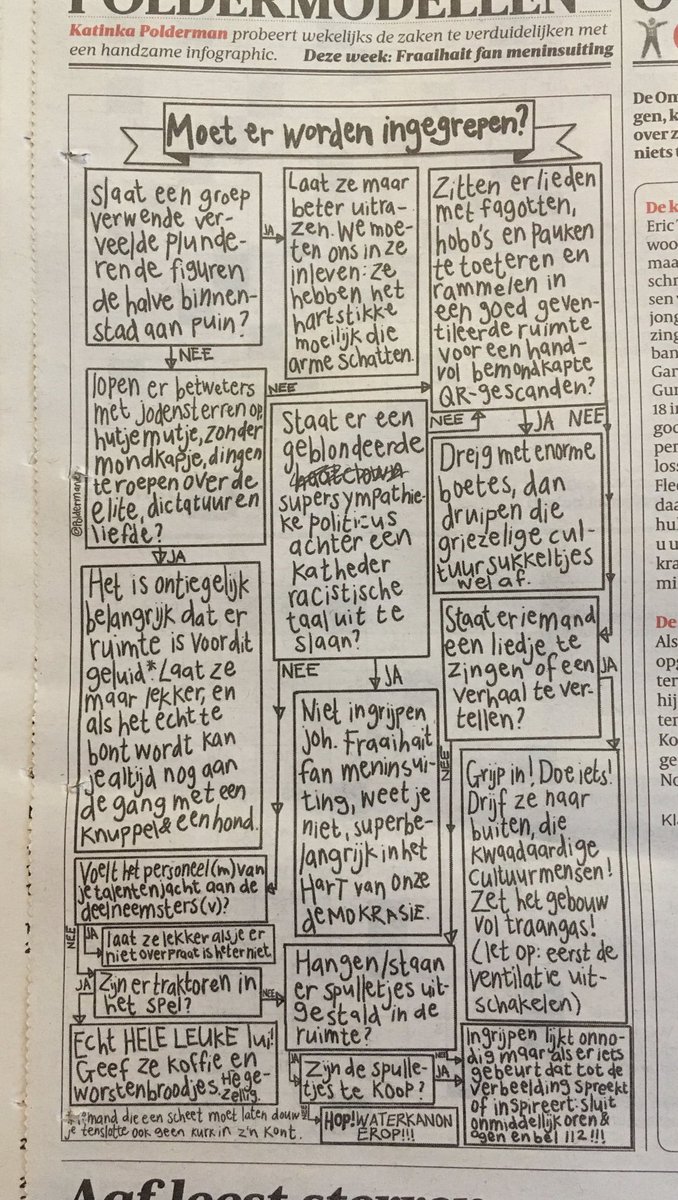 POLDERMODELLEN
Katinka Polderman probeert wekelijks de zaken te verduidelijken met
een handzame infographic. Deze week: Fraaihait fan meninsuiting
Moet er worden ingegrepen?
Slaat een groep
verwende ver-
veelde plunde-
rende figuren
de halve binnen-
stad aan puin?
JA
NEE
Laat ze maar
beter uitra-
zen. We moe-
ten ons in ze
inleven: ze
hebben het
hartstikke
moeilijk die
arme schatten.
Zitten er lieden
met fagotten,
hobo's en pauken
te toeteren en
rammelen in
een goed geven-
tileerde ruimte
voor een hand-
vol bemondkapte
QR-gescanden?
JA
NEE
lopen er betweters
met jodensterren op
hutjemutje, zonder
mondkapje, dingen
te roepen over de
elite, dictatuur en
liefde?
NEE
JA
@Poldermandy
Staat er een
geblondeerde
supersympathie-
ke politicus
achter een
katheder
racistische
taal uit te
slaan?
NEE
NEE
JA
Dreig met enorme
boetes, dan
druipen die
griezelige cul-
tuursukkeltjes
wel af.
Het is ontiegelijk
belangrijk dat er
ruimte is voor dit
geluid*. Laat ze
maar lekker, en
als het echt te
bont wordt kan
je altijd nog aan
de gang met een
knuppel & een hond.
Staat er iemand
een liedje te
zingen of een
verhaal te ver-
tellen?
JA
NEE
Niet ingrijpen
joh. Fraaihait
fan meninsui-
ting, weet je
niet, superbe-
langrijk in het
HART van onze
deMOKRASIE.
Grijp in! Doe iets!
Drijf ze naar
buiten, die
kwaadaardige
cultuurmensen!
Zet het gebouw
vol traangas!
(let op: eerst de
ventilatie uit-
schakelen)
Voelt het personeel (m) van
je talentenjacht aan de
deelneemsters (v)?
NEE
JA
laat ze lekker als je er
niet over praat is het er niet
Zijn er traktoren in
het spel?
JA
NEE
Hangen/staan
er spulletjes uit-
gestald in de
ruimte?
JA
NEE
Echt HELE LEUKE lui!
Geef ze koffie en
worstenbroodjes. He ge-
zellig.
Zijn de spulle-
tjes te KOOP?
JA
Ingrijpen lijkt onno-
dig maar als er iets
gebeurt dat tot de
verbeelding spreekt
of inspireert: sluit
onmiddellijk oren &
ogen en bel 112!!!
HOP! WATERKANON
EROP!!!
* iemand die een scheet moet laten douw
je tenslotte ook geen kurk in z'n kont.
De Om
gen, k
over z
niets t
De k
Eric
woo
maa
schr
sen v
jong
zing
ban
Gar
Gun
18 in
goo
per
loss
Flee
daa
hul
u u
kra
mi
De
Als
opg
ter
hij
ten
Ko
ge
No
Kl
Aaf leest sterren